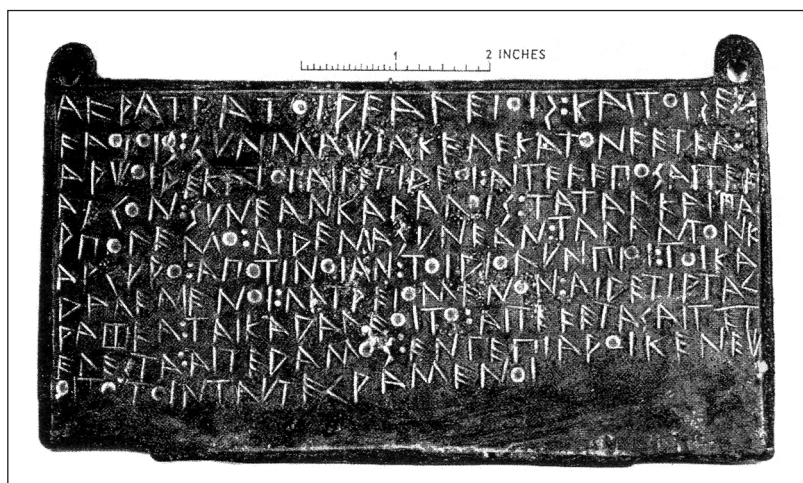 1 2 INCHES
ΑϜΡΑΤΡΑΤΟΙΡϜΑΛΕΙΟΙΣ:ΚΑΙΤΟΙΣΕΡ
ϜΑΟΙΟΙΣ:ΣΥΝΜΑΧΙΑΚΕΑΕΚΑΤΟΝϜΕΤΕΑ:
ΑΡΧΟΙΔΕΚΑΤΟΙ:ΑΙΔΕΤΙΔΕΟΙ:ΑΙΤΕϜΕΠΟΣΑΙΤΕϜ
ΑΡΓΟΝ:ΣΥΝΕΑΝΚΑΛΑΛΟΙΣ:ΤΑΤΑΛΚΑΙΠΑ
ΡΠΟΛΕΜΟ:ΑΙΔΕΜΑΣΥΝΕΑΝ:ΤΑΛΑΝΤΟΝΚ
ΑΡΓΥΡΟ:ΑΠΟΤΙΝΟΙΑΝ:ΤΟΙΔΙΟΛΥΝΠΙΟΙ:ΤΟΙΚΑ
ΔΑΛΕΜΕΝΟΙ:ΛΑΤΡΕΙΟΜΕΝΟΝ:ΑΙΔΕΤΙΡΤΑΓ
ΡΑΦΕΑ:ΤΑΙΚΑΔΑΛΕΟΙΤΟ:ΑΙΤΕϜΕΤΑΣΑΙΤΕΤ
ΕΛΕΣΤΑ:ΑΙΤΕΔΑΜΟΣ:ΕΝΤΕΠΙΑΡΟΙΚΕΝΕΧ
ΟΙΤΟΤΟΙΝΤΑΥΤΕΓΡΑΜΕΝΟΙ